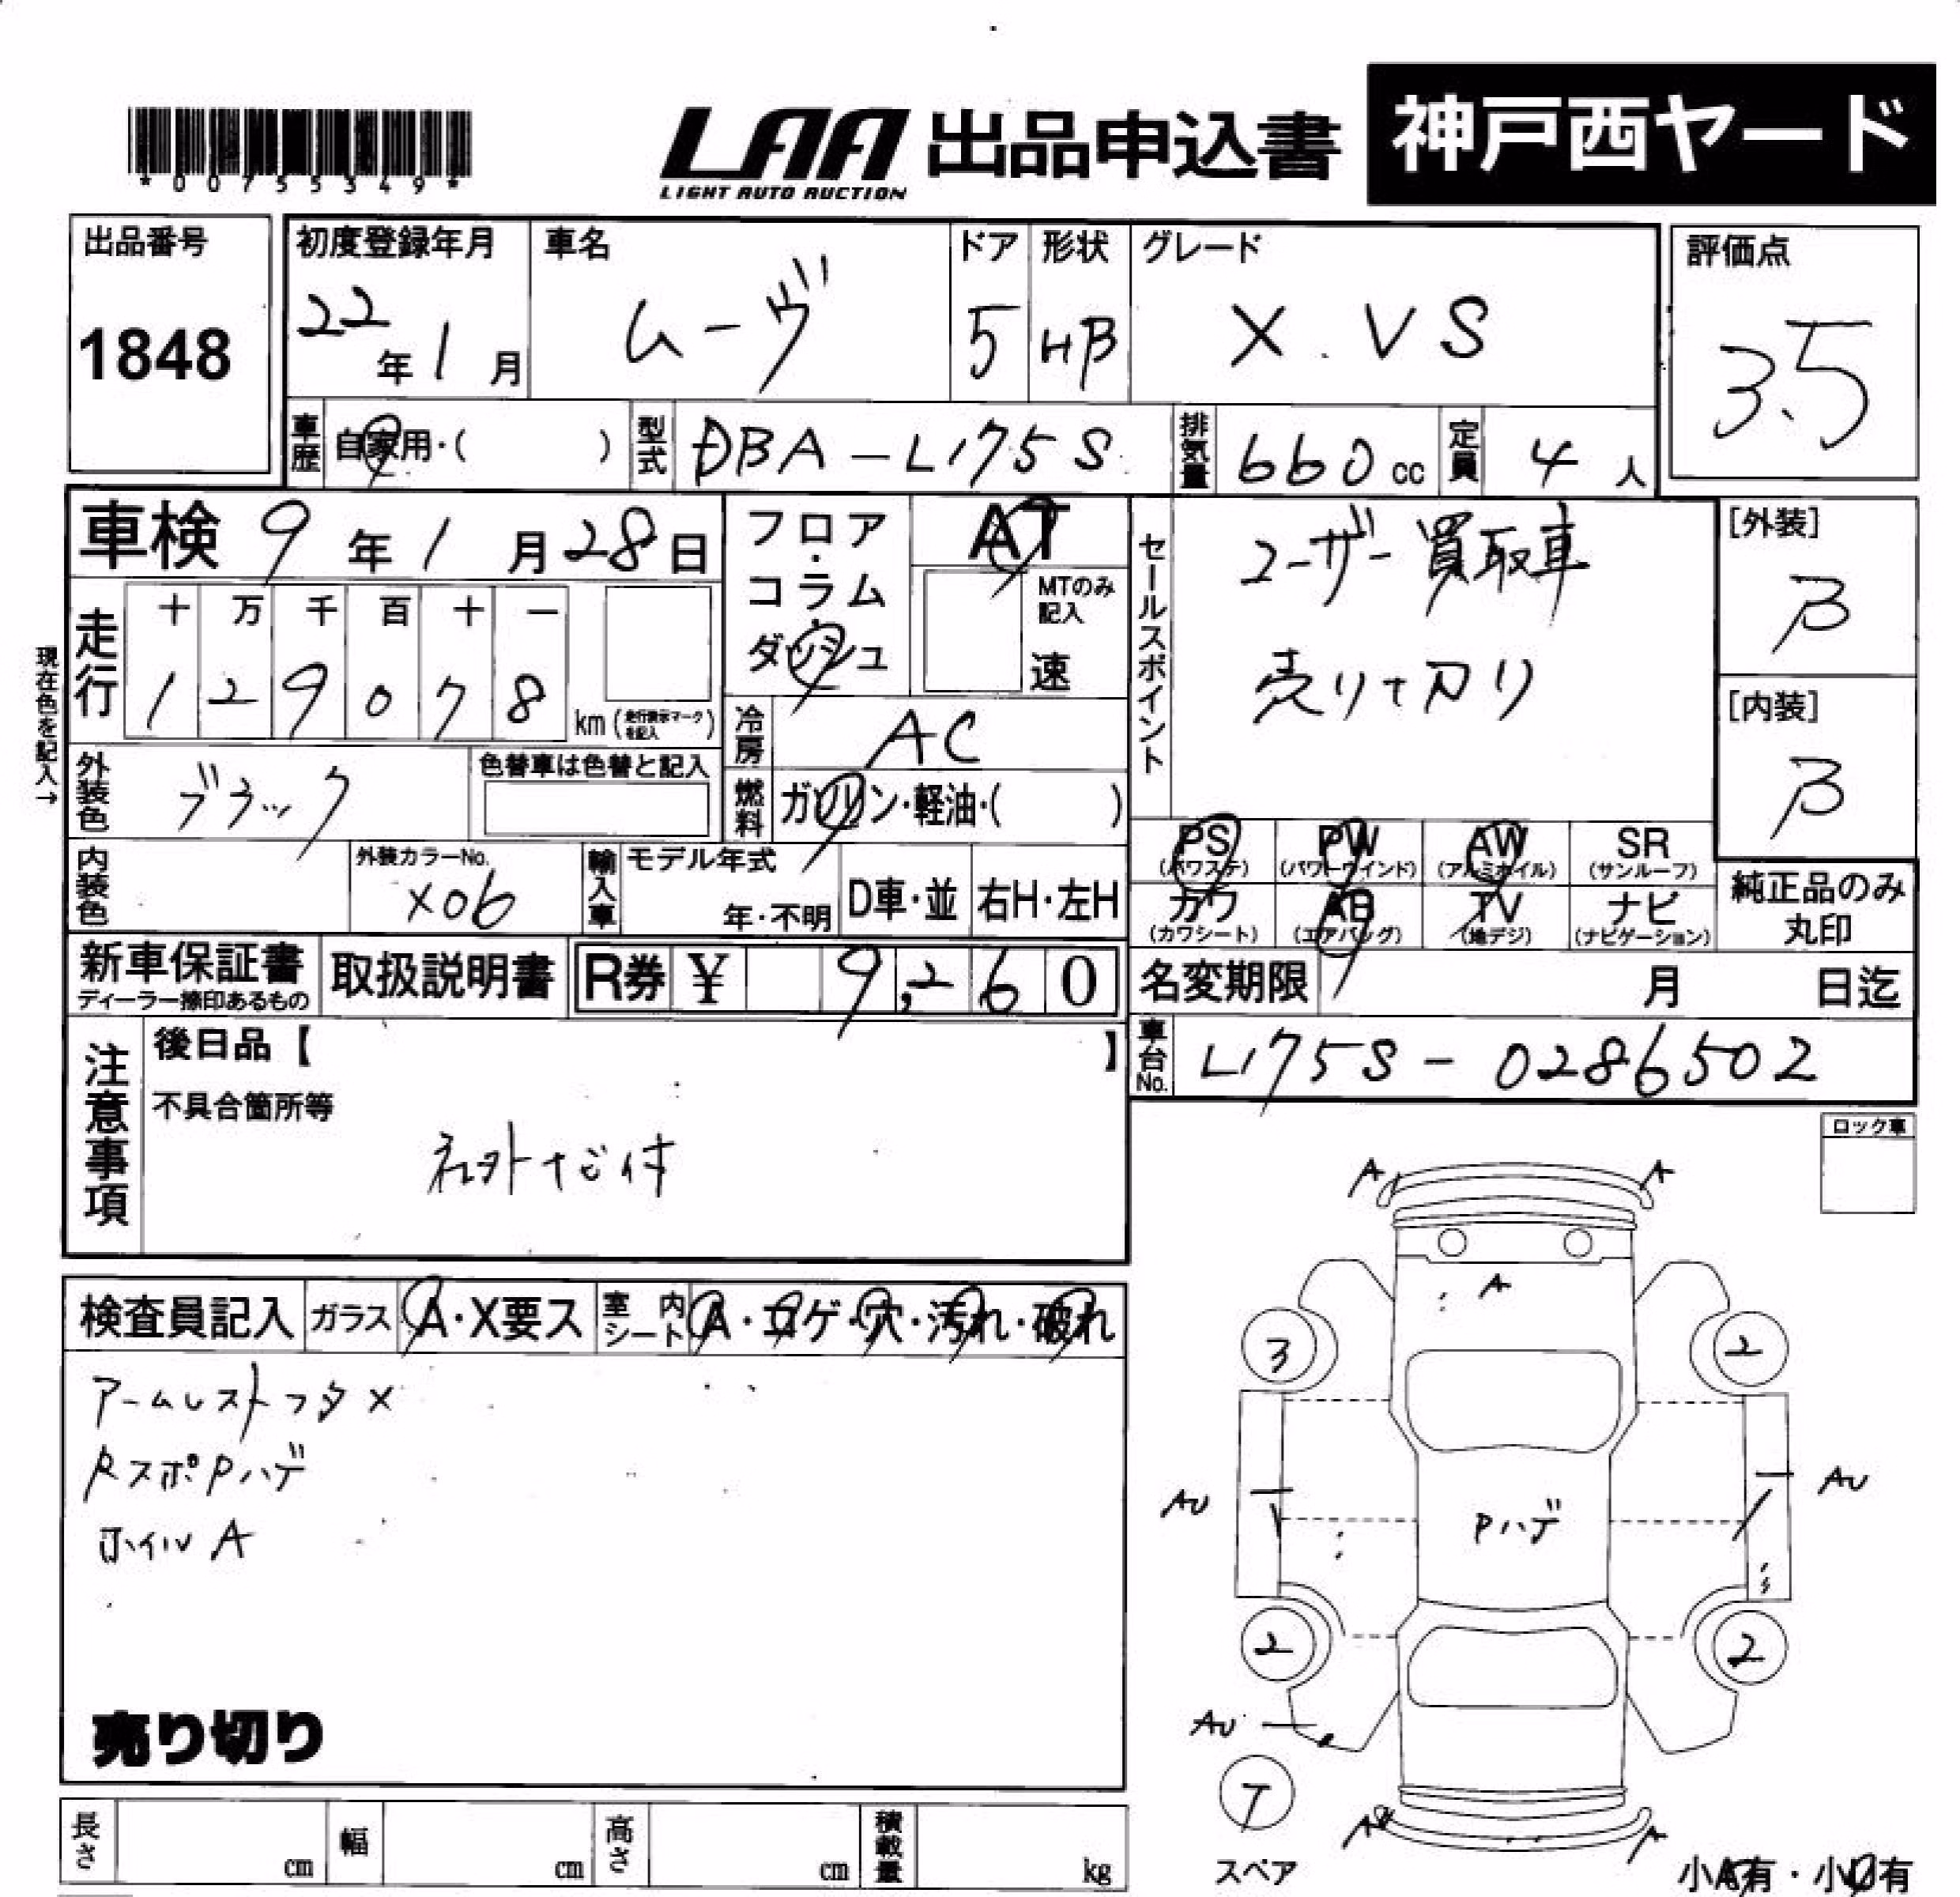 *00755349*
LAA 出品申込書 神戸西ヤード
LIGHT AUTO AUCTION
出品番号
1848
初度登録年月
22年1月
車名
ムーヴ
ドア
5
形状
HB
グレード
X.VS
評価点
3.5
車歴 自家用・( )
型式 DBA-L175S
排気量 660cc
定員 4人
車検 9年1月28日
フロア・コラム・ダッシュ
AT
MTのみ記入
速
セールスポイント
ユーザー買取車
売り切り
[外装]
B
[内装]
B
現在色を記入→
走行
十 万 千 百 十 一
1 2 9 0 7 8 km (走行表示マークを記入)
冷房 AC
外装色 ブラック
色替車は色替と記入
燃料 ガソリン・軽油・( )
PS (パワステ) PW (パワーウインド) AW (アルミホイル) SR (サンルーフ)
カワ (カワシート) AB (エアバッグ) TV (地デジ) ナビ (ナビゲーション)
純正品のみ丸印
内装色
外装カラーNo.
X06
輸入車 モデル年式
年・不明 D車・並 右H・左H
新車保証書
ディーラー捺印あるもの
取扱説明書
R券 ¥ 9,260
名変期限 月 日迄
車台No. L175S-0286502
注意事項
後日品【 】
不具合箇所等
社外ナビ付
ロック車
検査員記入 ガラス A・X要ス 室内シート A・コゲ・穴・汚れ・破れ
アームレストフタX
RスポPハゲ
ホイルA
売り切り
A A
A
3 2
AU AU
Pハゲ
2 2
AU
T
スペア
A A
小A有・小U有
長さ cm 幅 cm 高さ cm 積載量 kg